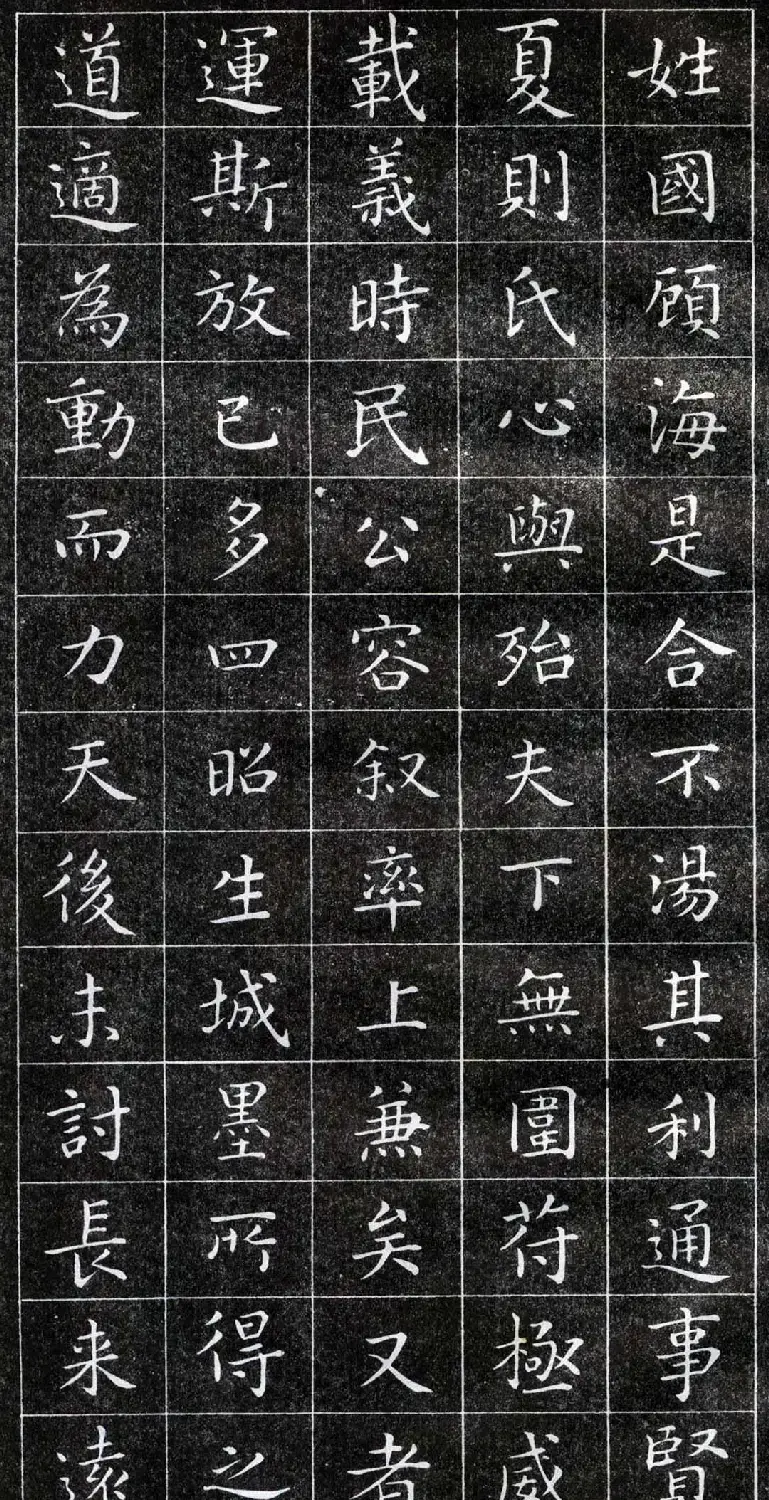 姓國頋海是合不湯其利通事賢
夏則氏心與殆夫下無圍苻極威
載義時民公容叙率上兼矣又者
運斯放已多四昭生城墨所得之
道適為動而力天後未討長来遠